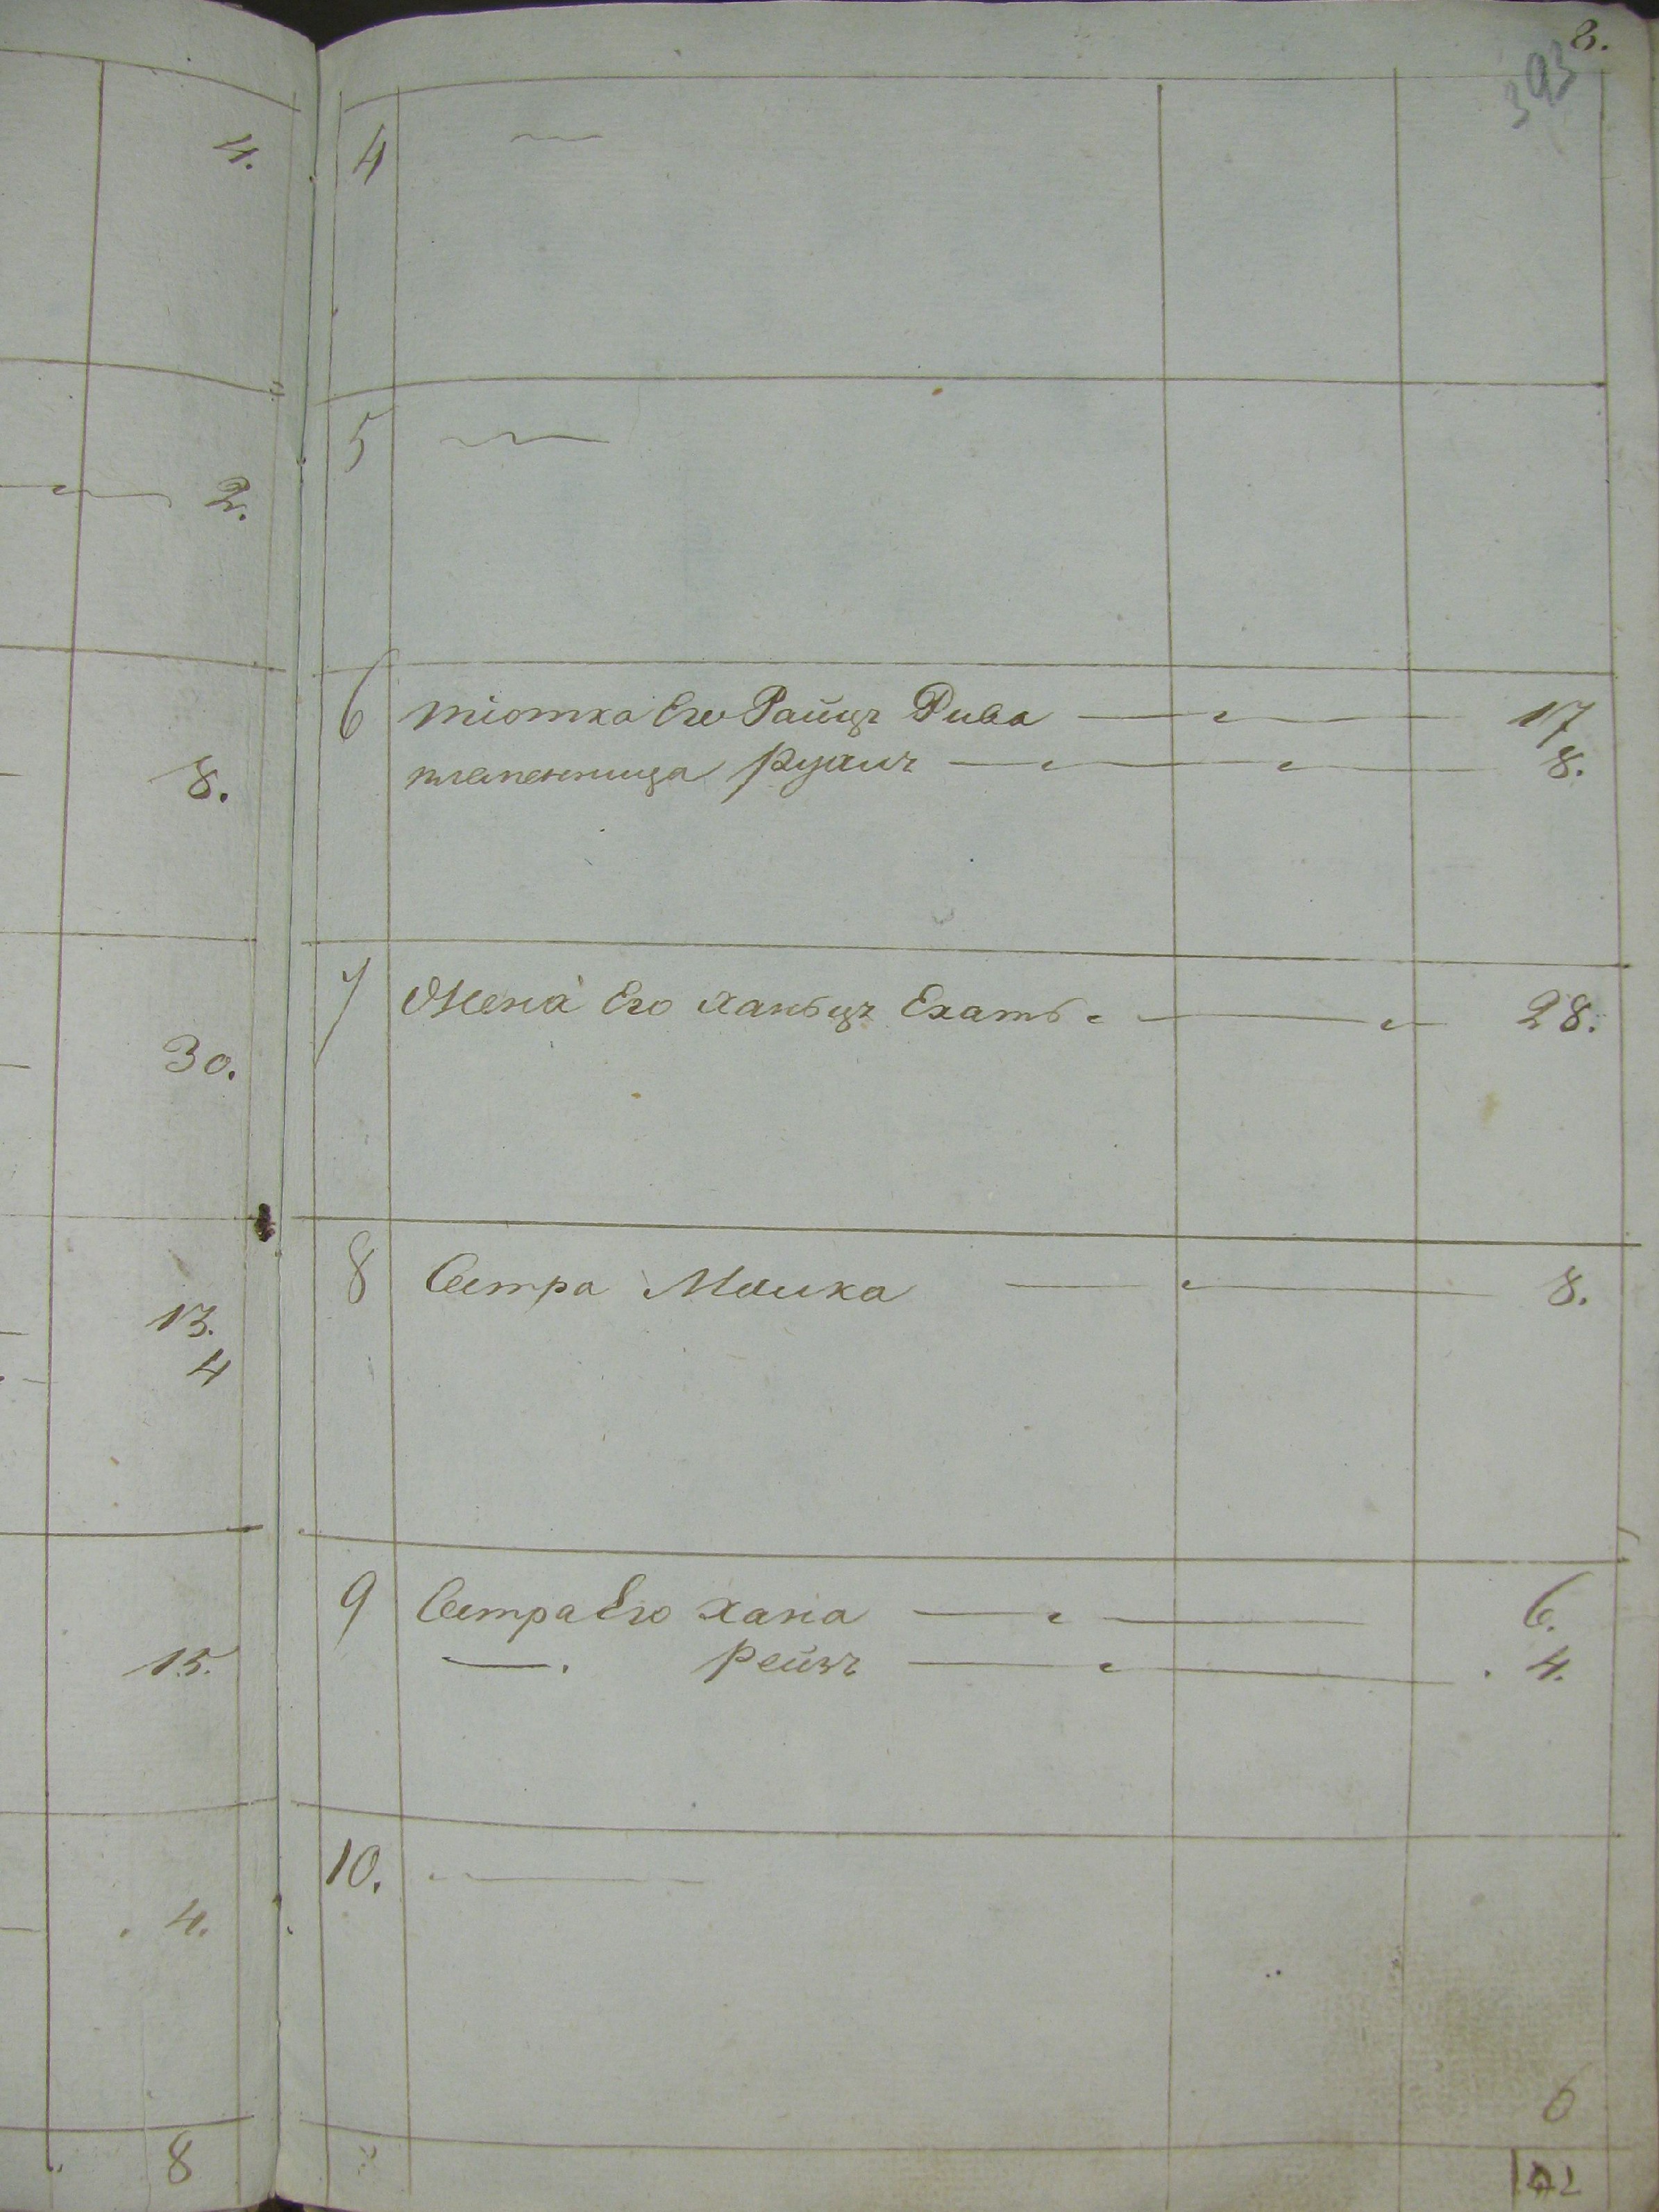 8.
393
4.
4
2.
5
6 тіотка Его Райцъ Рива 17
8.
племенница 8.
7 Жена Его Ханьцъ Ехать 28.
30.
8 Сестра Маика 8.
13.
4
9 Сестра Его Хана 6.
15.
Рейзъ 4.
10.
4.
6
8